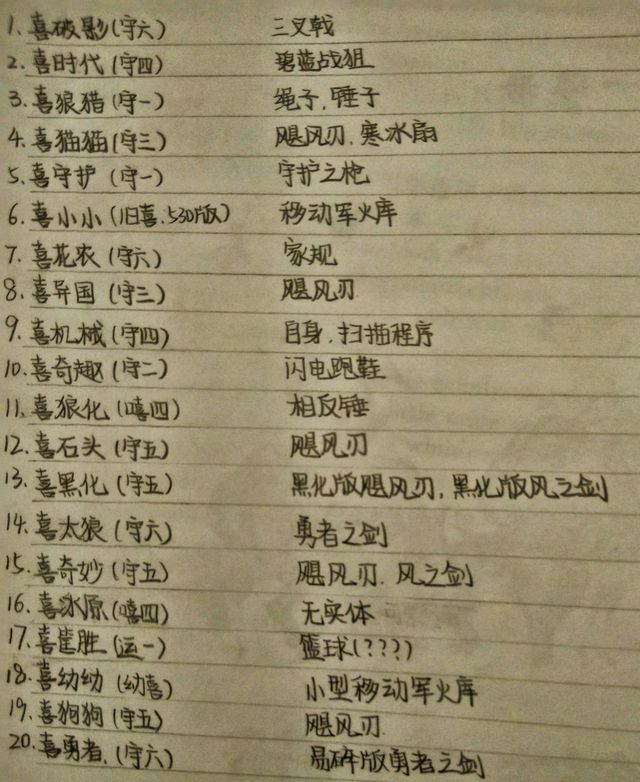 1.喜破影(守六) 三叉戟
2.喜时代(守四) 碧蓝战狙
3.喜狼猎(守一) 绳子.锤子
4.喜猫猫(守三) 飓风刃.寒冰扇
5.喜守护(守一) 守护之枪
6.喜小小(旧喜.530版) 移动军火库
7.喜花农(守六) 家规
8.喜异国(守三) 飓风刃
9.喜机械(守四) 自身.扫描程序
10.喜奇趣(守二) 闪电跑鞋
11.喜狼化(嘻四) 相反锤
12.喜石头(守五) 飓风刃
13.喜黑化(守五) 黑化版飓风刃,黑化版风之剑
14.喜太狼(守六) 勇者之剑
15.喜奇妙(守五) 飓风刃.风之剑
16.喜冰原(嘻四) 无实体
17.喜隹胜(运一) 篮球(???)
18.喜幼幼(幼喜) 小型移动军火库
19.喜狗狗(守五) 飓风刃
20.喜勇者.(守六) 易碎版勇者之剑